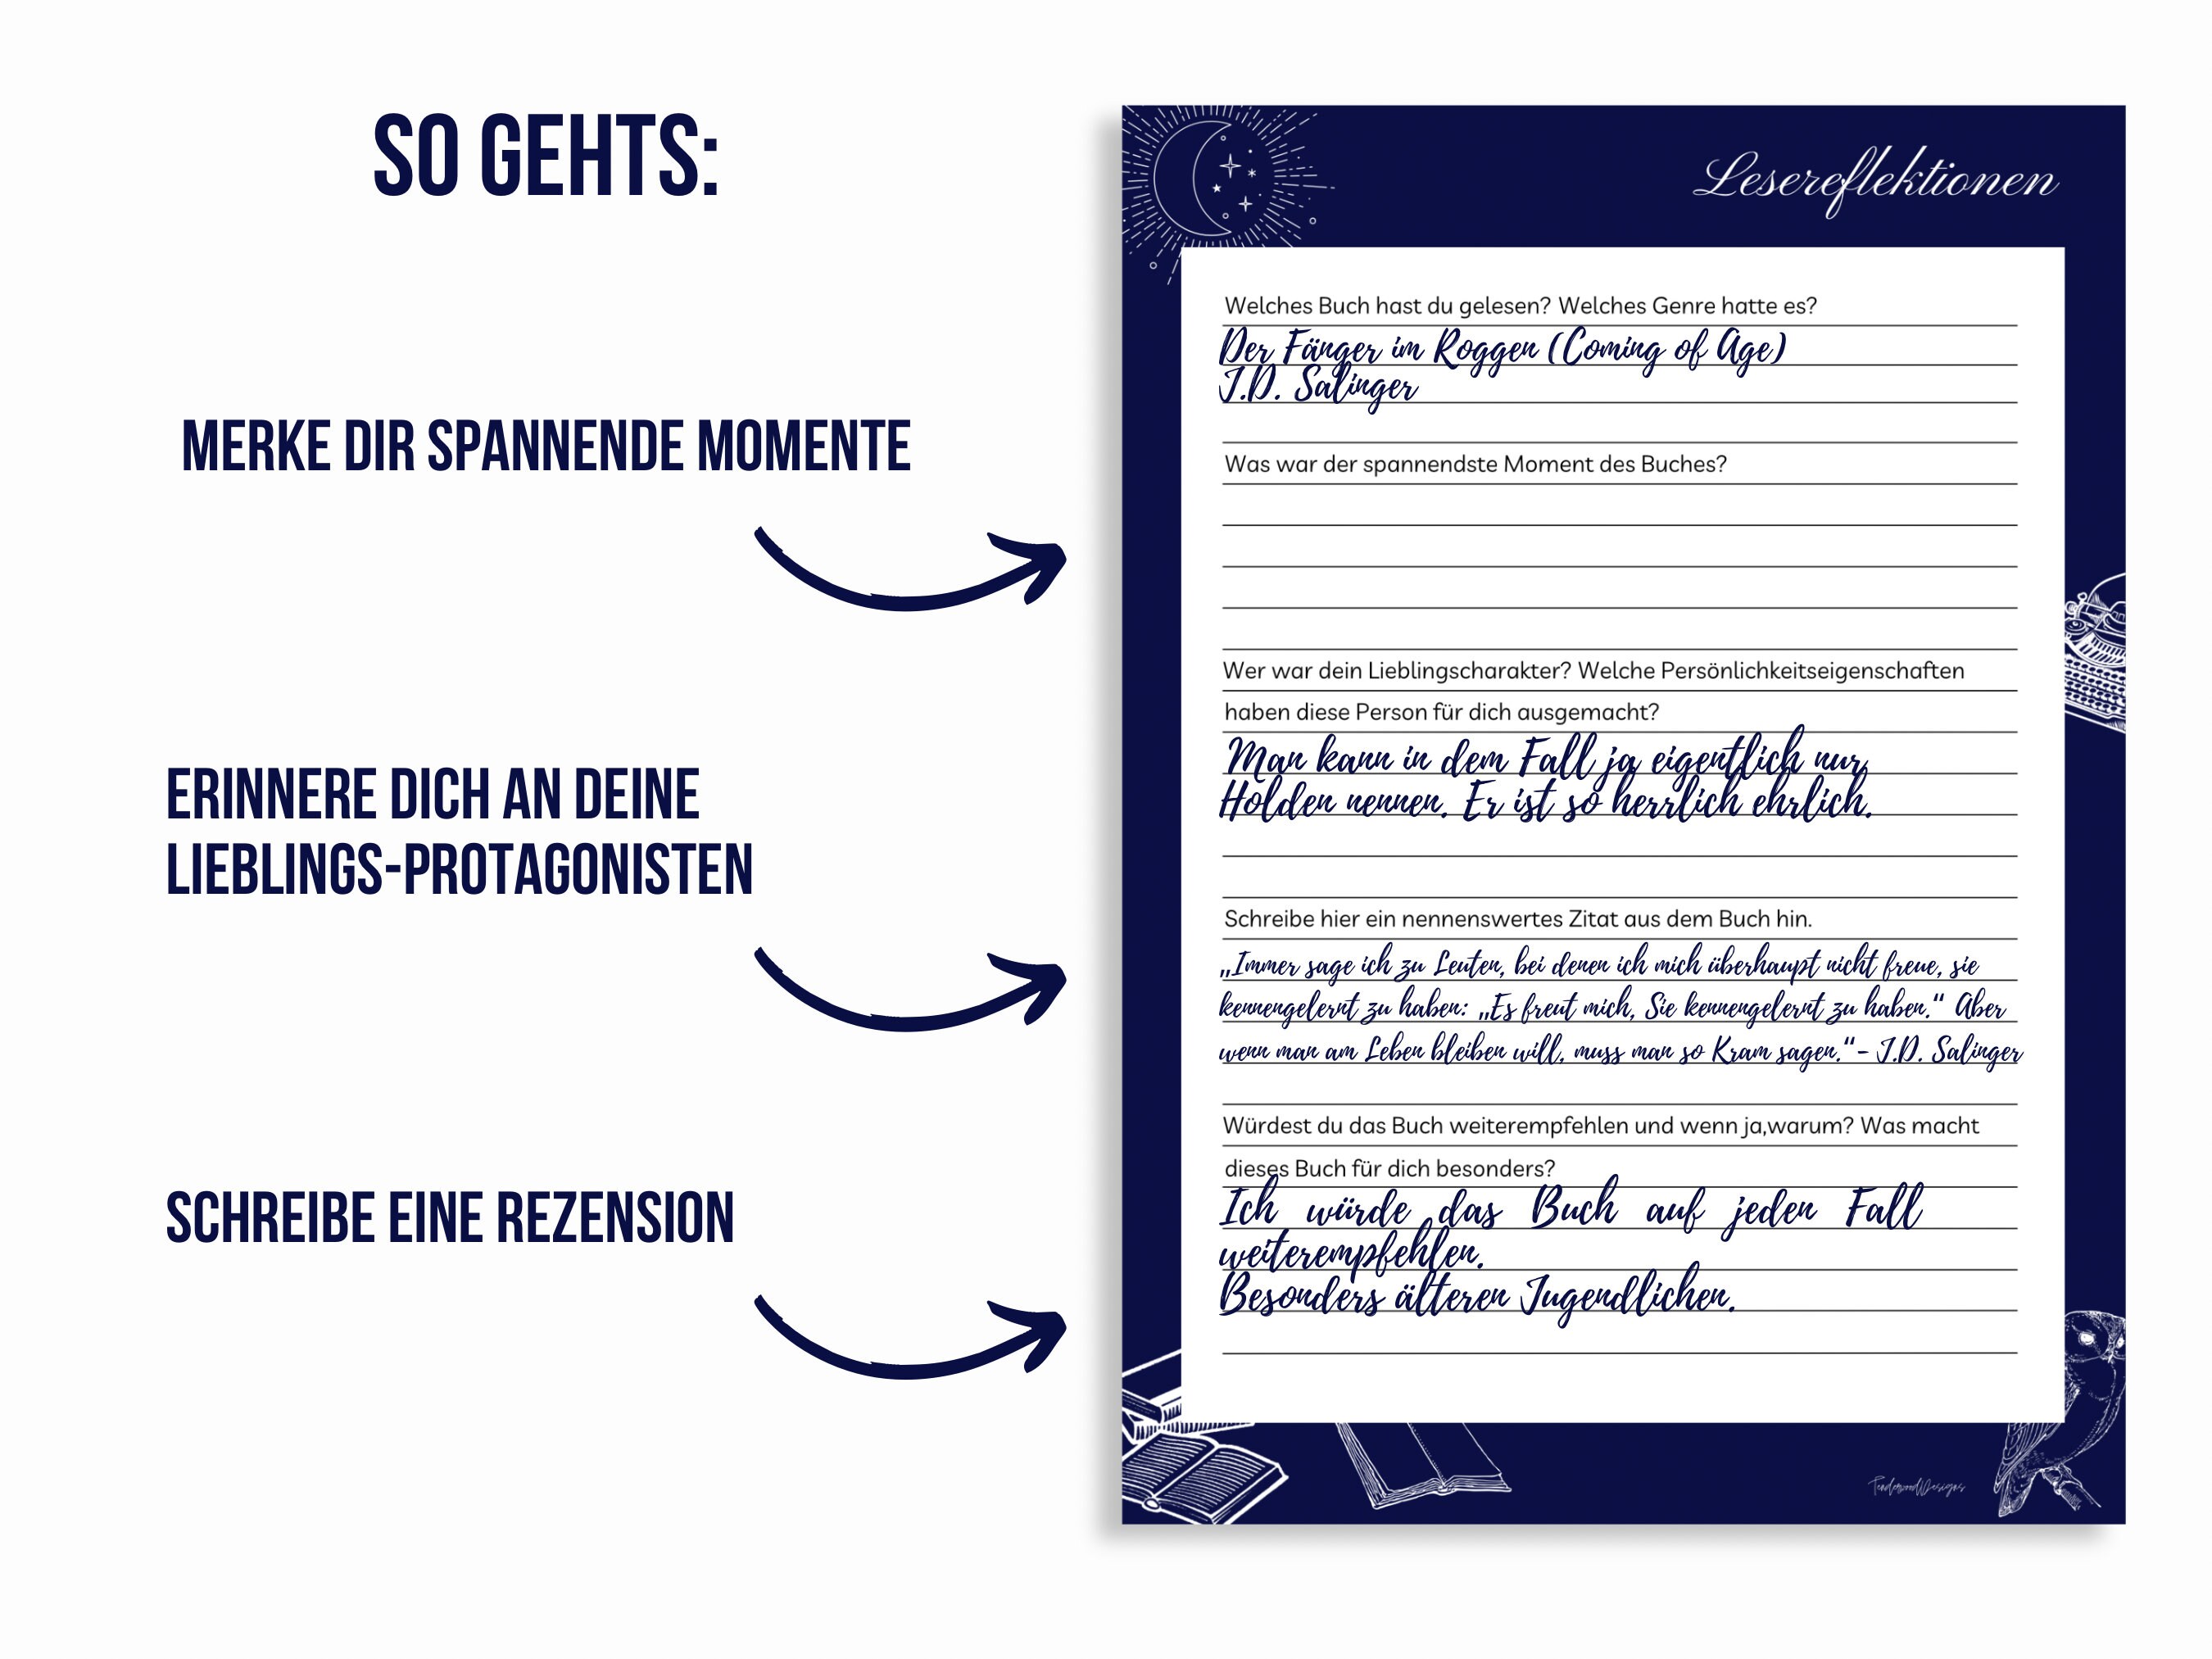 SO GEHTS:
MERKE DIR SPANNENDE MOMENTE
ERINNERE DICH AN DEINE
LIEBLINGS-PROTAGONISTEN
SCHREIBE EINE REZENSION
Lesereflektionen
Welches Buch hast du gelesen? Welches Genre hatte es?
Der Fänger im Roggen (Coming of Age)
J.D. Salinger
Was war der spannendste Moment des Buches?
Wer war dein Lieblingscharakter? Welche Persönlichkeitseigenschaften
haben diese Person für dich ausgemacht?
Man kann in dem Fall ja eigentlich nur
Holden nennen. Er ist so herrlich ehrlich.
Schreibe hier ein nennenswertes Zitat aus dem Buch hin.
„Immer sage ich zu Leuten, bei denen ich mich überhaupt nicht freue, sie
kennengelernt zu haben: „Es freut mich, Sie kennengelernt zu haben.“ Aber
wenn man am Leben bleiben will, muss man so Kram sagen.“- J.D. Salinger
Würdest du das Buch weiterempfehlen und wenn ja,warum? Was macht
dieses Buch für dich besonders?
Ich würde das Buch auf jeden Fall
weiterempfehlen.
Besonders älteren Jugendlichen.